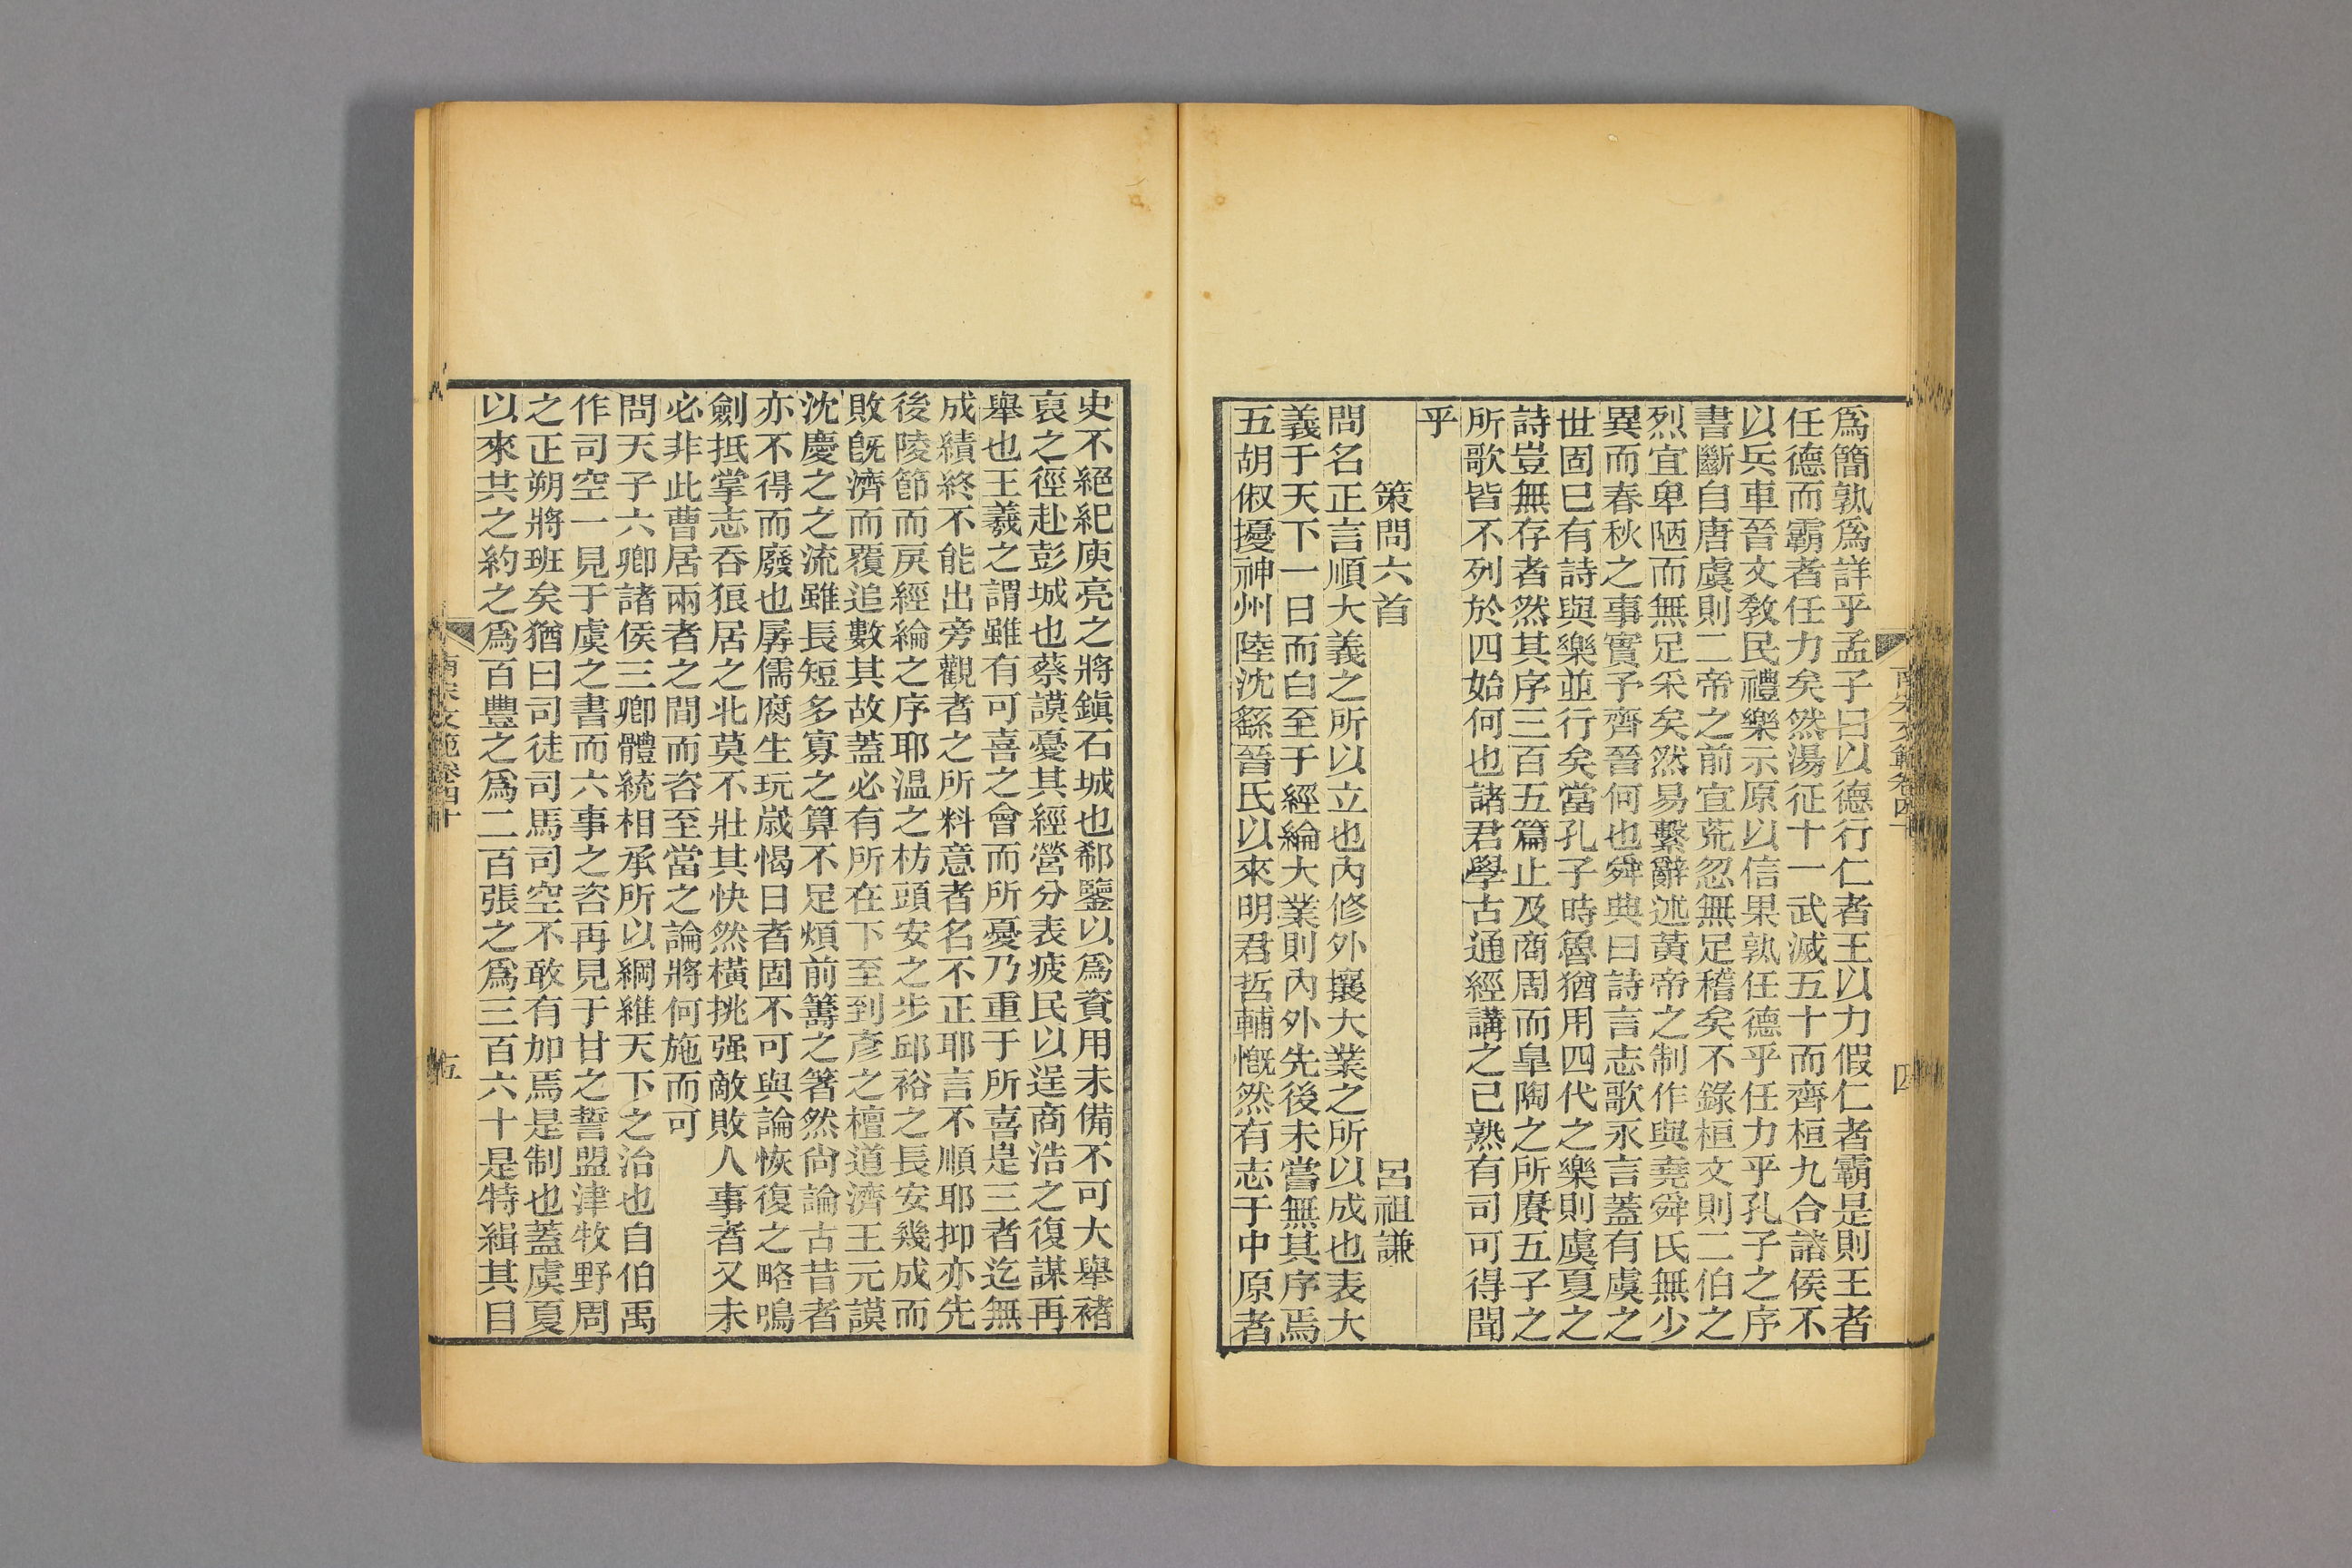 為簡孰為詳乎孟子曰以德行仁者王以力假仁者霸是則王者
任德而霸者任力矣然湯征十一武滅五十而齊桓九合諸侯不
以兵車晉文教民禮樂示原以信果孰任德乎任力乎孔子之序
書斷自唐虞則二帝之前宜荒忽無足稽矣不錄桓文則二伯之
烈宜卑陋而無足采矣然易繫辭述黃帝之制作與堯舜氏無少
異而春秋之事實予齊晉何也舜典曰詩言志歌永言蓋有虞之
世固已有詩與樂並行矣當孔子時魯猶用四代之樂則虞夏之
詩豈無存者然其序三百五篇止及商周而皐陶之所賡五子之
所歌皆不列於四始何也諸君學古通經講之已熟有司可得聞
乎
策問六首 呂祖謙
問名正言順大義之所以立也內修外攘大業之所以成也表大
義于天下一日而白至于經綸大業則內外先後未嘗無其序焉
五胡俶擾神州陸沈繇晉氏以來明君哲輔慨然有志于中原者
南宋文範卷四十
四
史不絕紀庾亮之將鎮石城也郗鑒以為資用未備不可大舉褚
裒之徑赴彭城也蔡謨憂其經營分表疲民以逞商浩之復謀再
舉也王羲之謂雖有可喜之會而所憂乃重于所喜是三者迄無
成績終不能出旁觀者之所料意者名不正耶言不順耶抑亦先
後陵節而戾經綸之序耶溫之枋頭安之步邱裕之長安幾成而
敗旣濟而覆追數其故蓋必有所在下至到彥之檀道濟王元謨
沈慶之之流雖長短多寡之算不足煩前籌之箸然尙論古昔者
亦不得而廢也孱儒腐生玩歲愒日者固不可與論恢復之略鳴
劍抵掌志吞狼居之北莫不壯其快然橫挑强敵敗人事者又未
必非此曹居兩者之間而咨至當之論將何施而可
問天子六卿諸侯三卿體統相承所以綱維天下之治也自伯禹
作司空一見于虞之書而六事之咨再見于甘之誓盟津牧野周
之正朔將班矣猶曰司徒司馬司空不敢有加焉是制也蓋虞夏
以來共之約之為百豐之為二百張之為三百六十是特緝其目
南宋文範卷四十
五